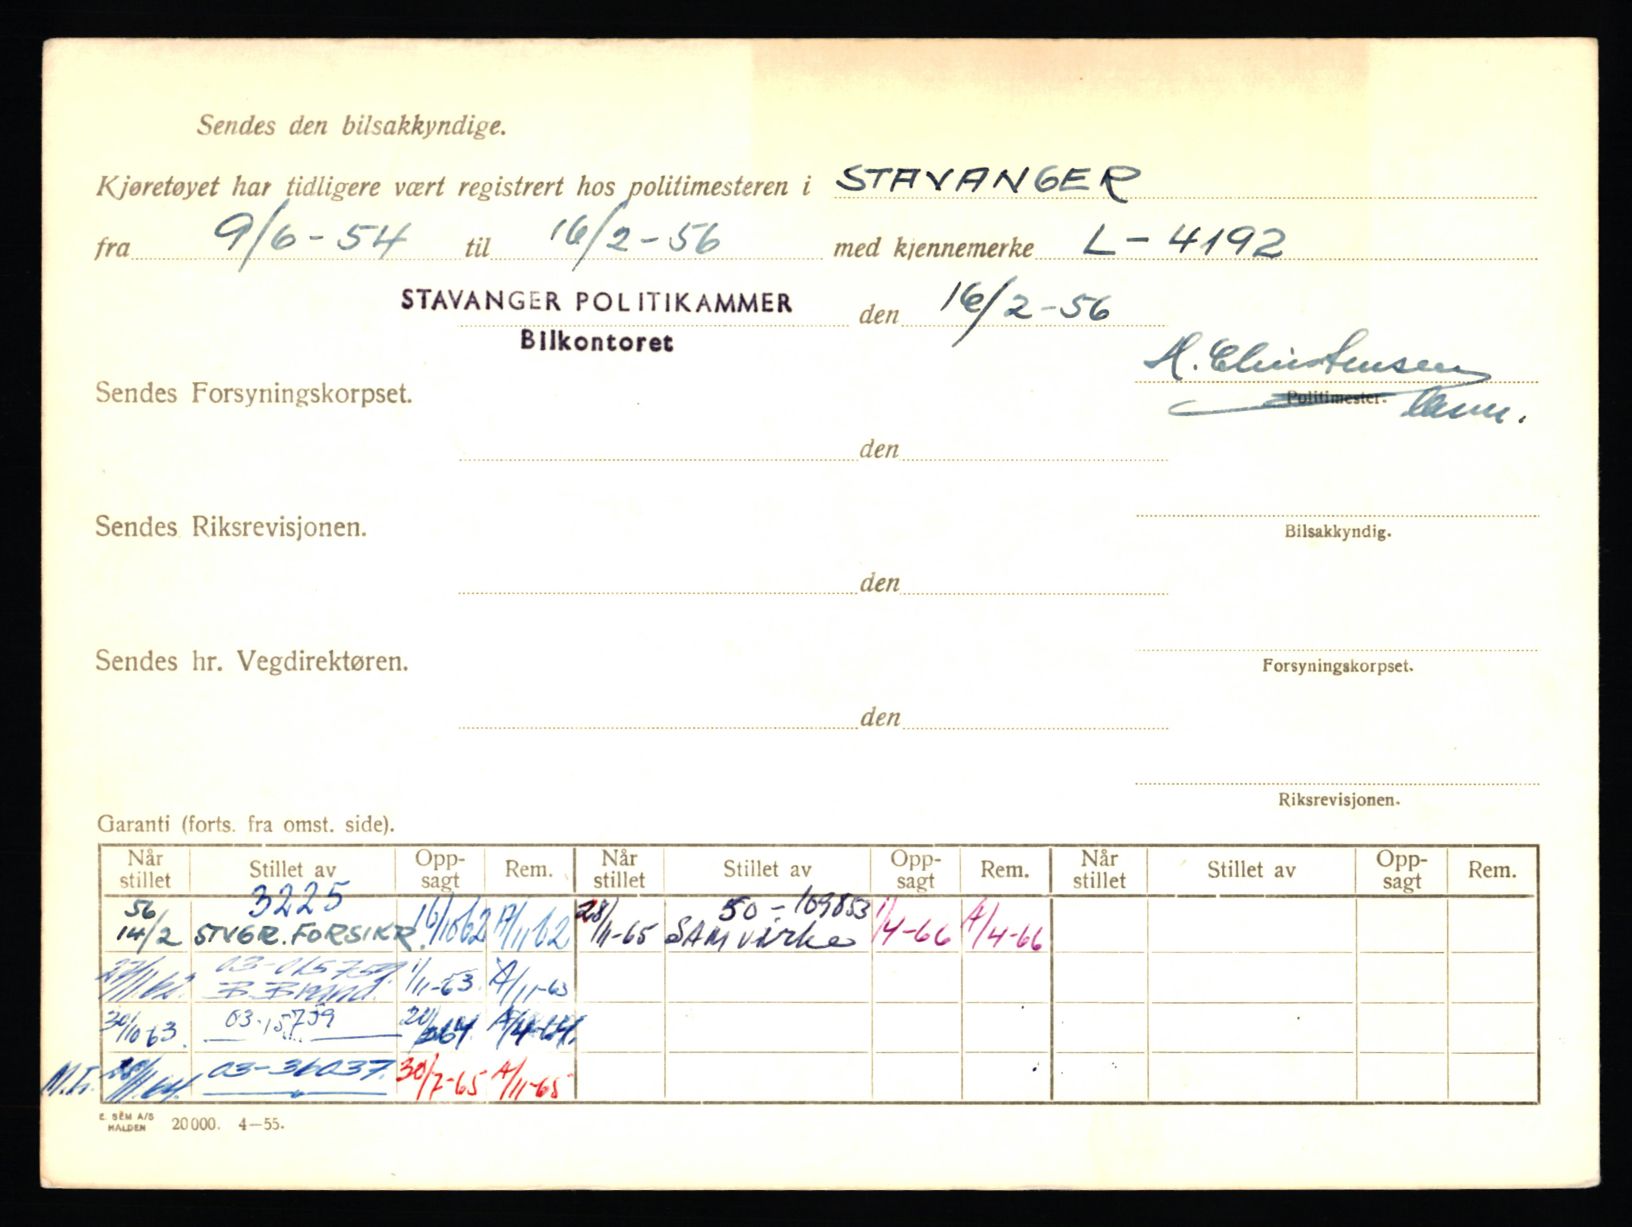 Sendes den bilsakkyndige.
Kjøretøyet har tidligere vært registrert hos politimesteren i STAVANGER
fra 9/6-54 til 16/2-56 med kjennemerke L-4192
STAVANGER POLITIKAMMER den 16/2-56
Bilkontoret
H. Christensen
Sendes Forsyningskorpset. Politimester.
den
Sendes Riksrevisjonen. Bilsakkyndig.
den
Sendes hr. Vegdirektøren. Forsyningskorpset.
den
Riksrevisjonen.
Garanti (forts. fra omst. side).
Når stillet Stillet av Opp-sagt Rem. Når stillet Stillet av Opp-sagt Rem. Når stillet Stillet av Opp-sagt Rem.
56 3225 50-109853
14/2 STVGR. FORSIKR. 16/10 62 A/11 62 28/11-65 SAMvirke 1/4-66 A/4-66
27/11 62. 03-015759 B. Brand. 1/11-63 A/11-63
30/10 63. 03-15739 A/4-64.
M.I. 03-36037. 30/7-65 A/11-65
E. SEM A/S
HALDEN 20000. 4-55.